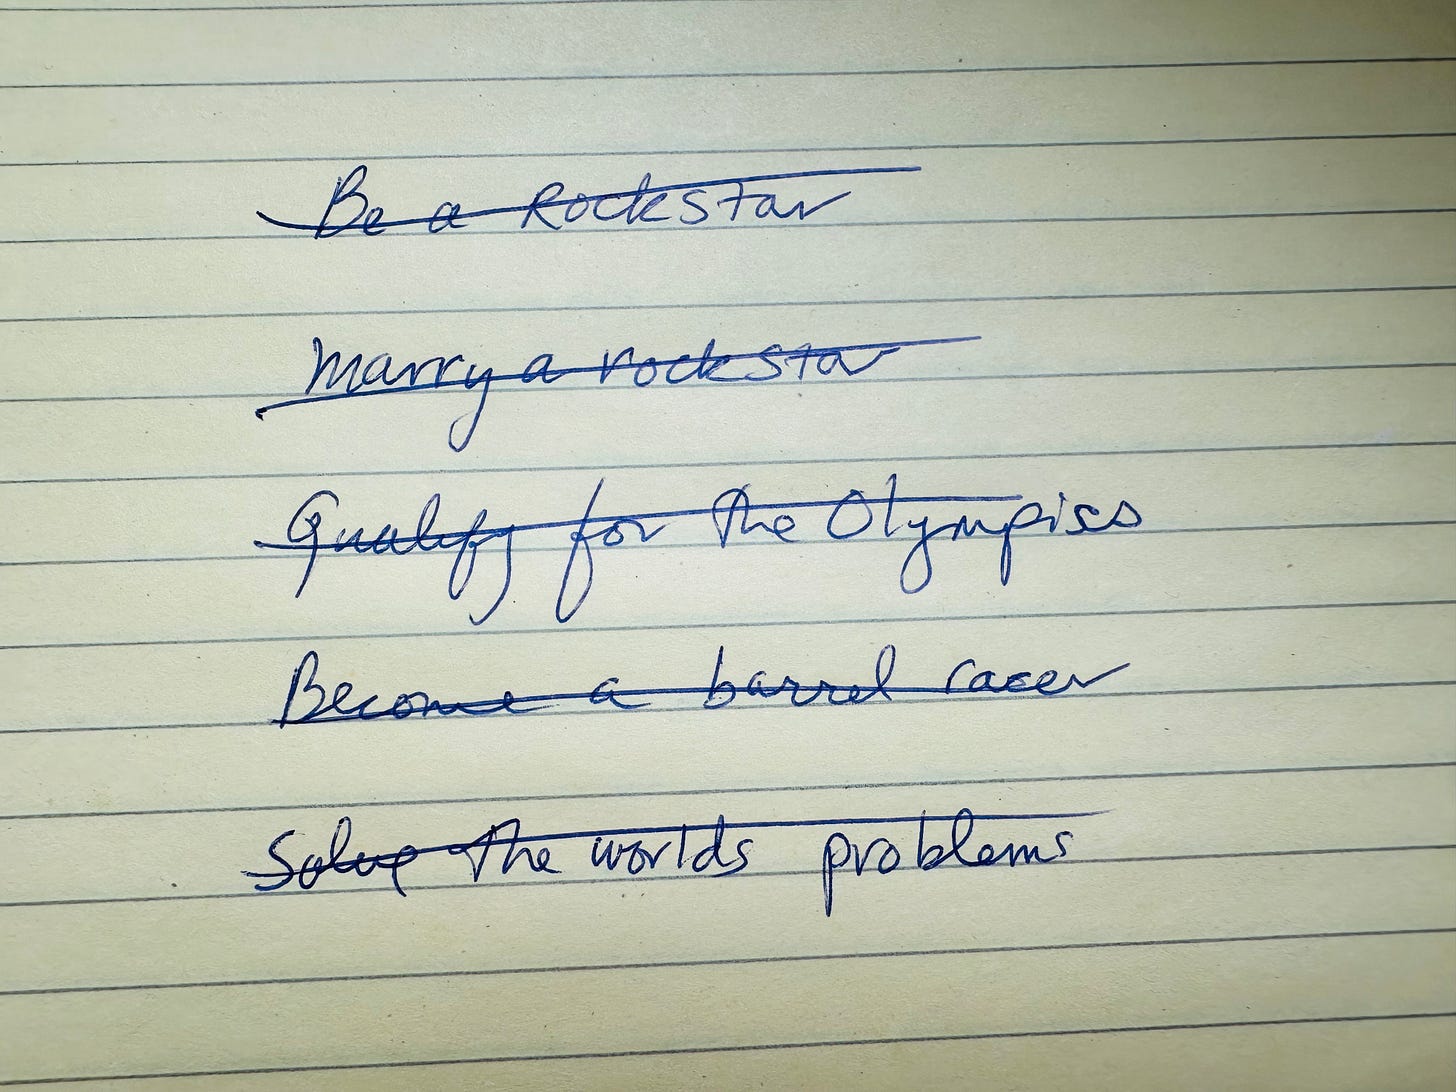 Be a Rockstar
Marry a rockstar
Qualify for the Olympiscs
Become a barrel racer
Solve the worlds problems